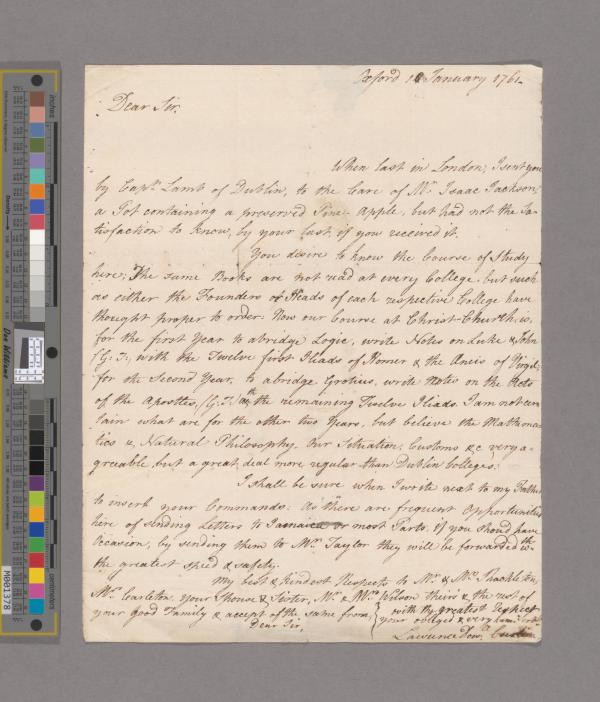 Oxford 1 January 1761
Dear Sir,
When last in London, I sent you
by Capt. Lamb of Dublin, to the Care of Mr. Isaac Jackson,
a Pot containing a preserved Pine-Apple, but had not the Sa-
tisfaction to know, by your last, if you received it.
You desire to know the Course of Study
here; The same Books are not read at every College, but such
as either the Founders or Heads of each respective College have
thought proper to order: Now our Course at Christ-Church, is,
for the first Year to abridge Logic, write Notes on Luke & John
(G: T:, with the Twelve first Iliads of Homer & the Aneis of Virgil;
for the Second Year, to abridge Grotius, write Notes on the Acts
of the Apostles, (G: T:) the remaining Twelve Iliads. I am not cer-
tain what are for the other two Years, but believe the Mathema-
tics & Natural Philosophy. Our Situation, Customs &c very a-
greeable, but a great deal more regular than Dublin Colleges.
I shall be sure when I write next to my Father
to insert your Commands: As there are frequent Opportunities
here of sending Letters to Jamaica or most Parts, if you should have
Occasion, by sending them to Mr. Taylor they will be forwarded wth.
the greatest speed & safety.
My best & kindest Respects to Mr. & Mrs. Shackleton,
Mrs. Carleton, your Spouse & Sister, Mr. & Mrs. Wilson, theirs & the rest of
your good Family & accept of the same from,
Dear Sir,
with the greatest Respect
your obliged & very
Lawrence
inches
centimeters
Don Williams
M001378